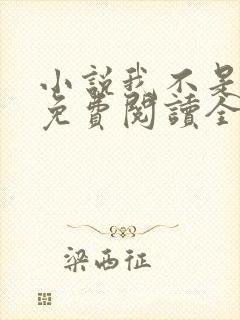 小説我不是
免費閱讀全
梁西征